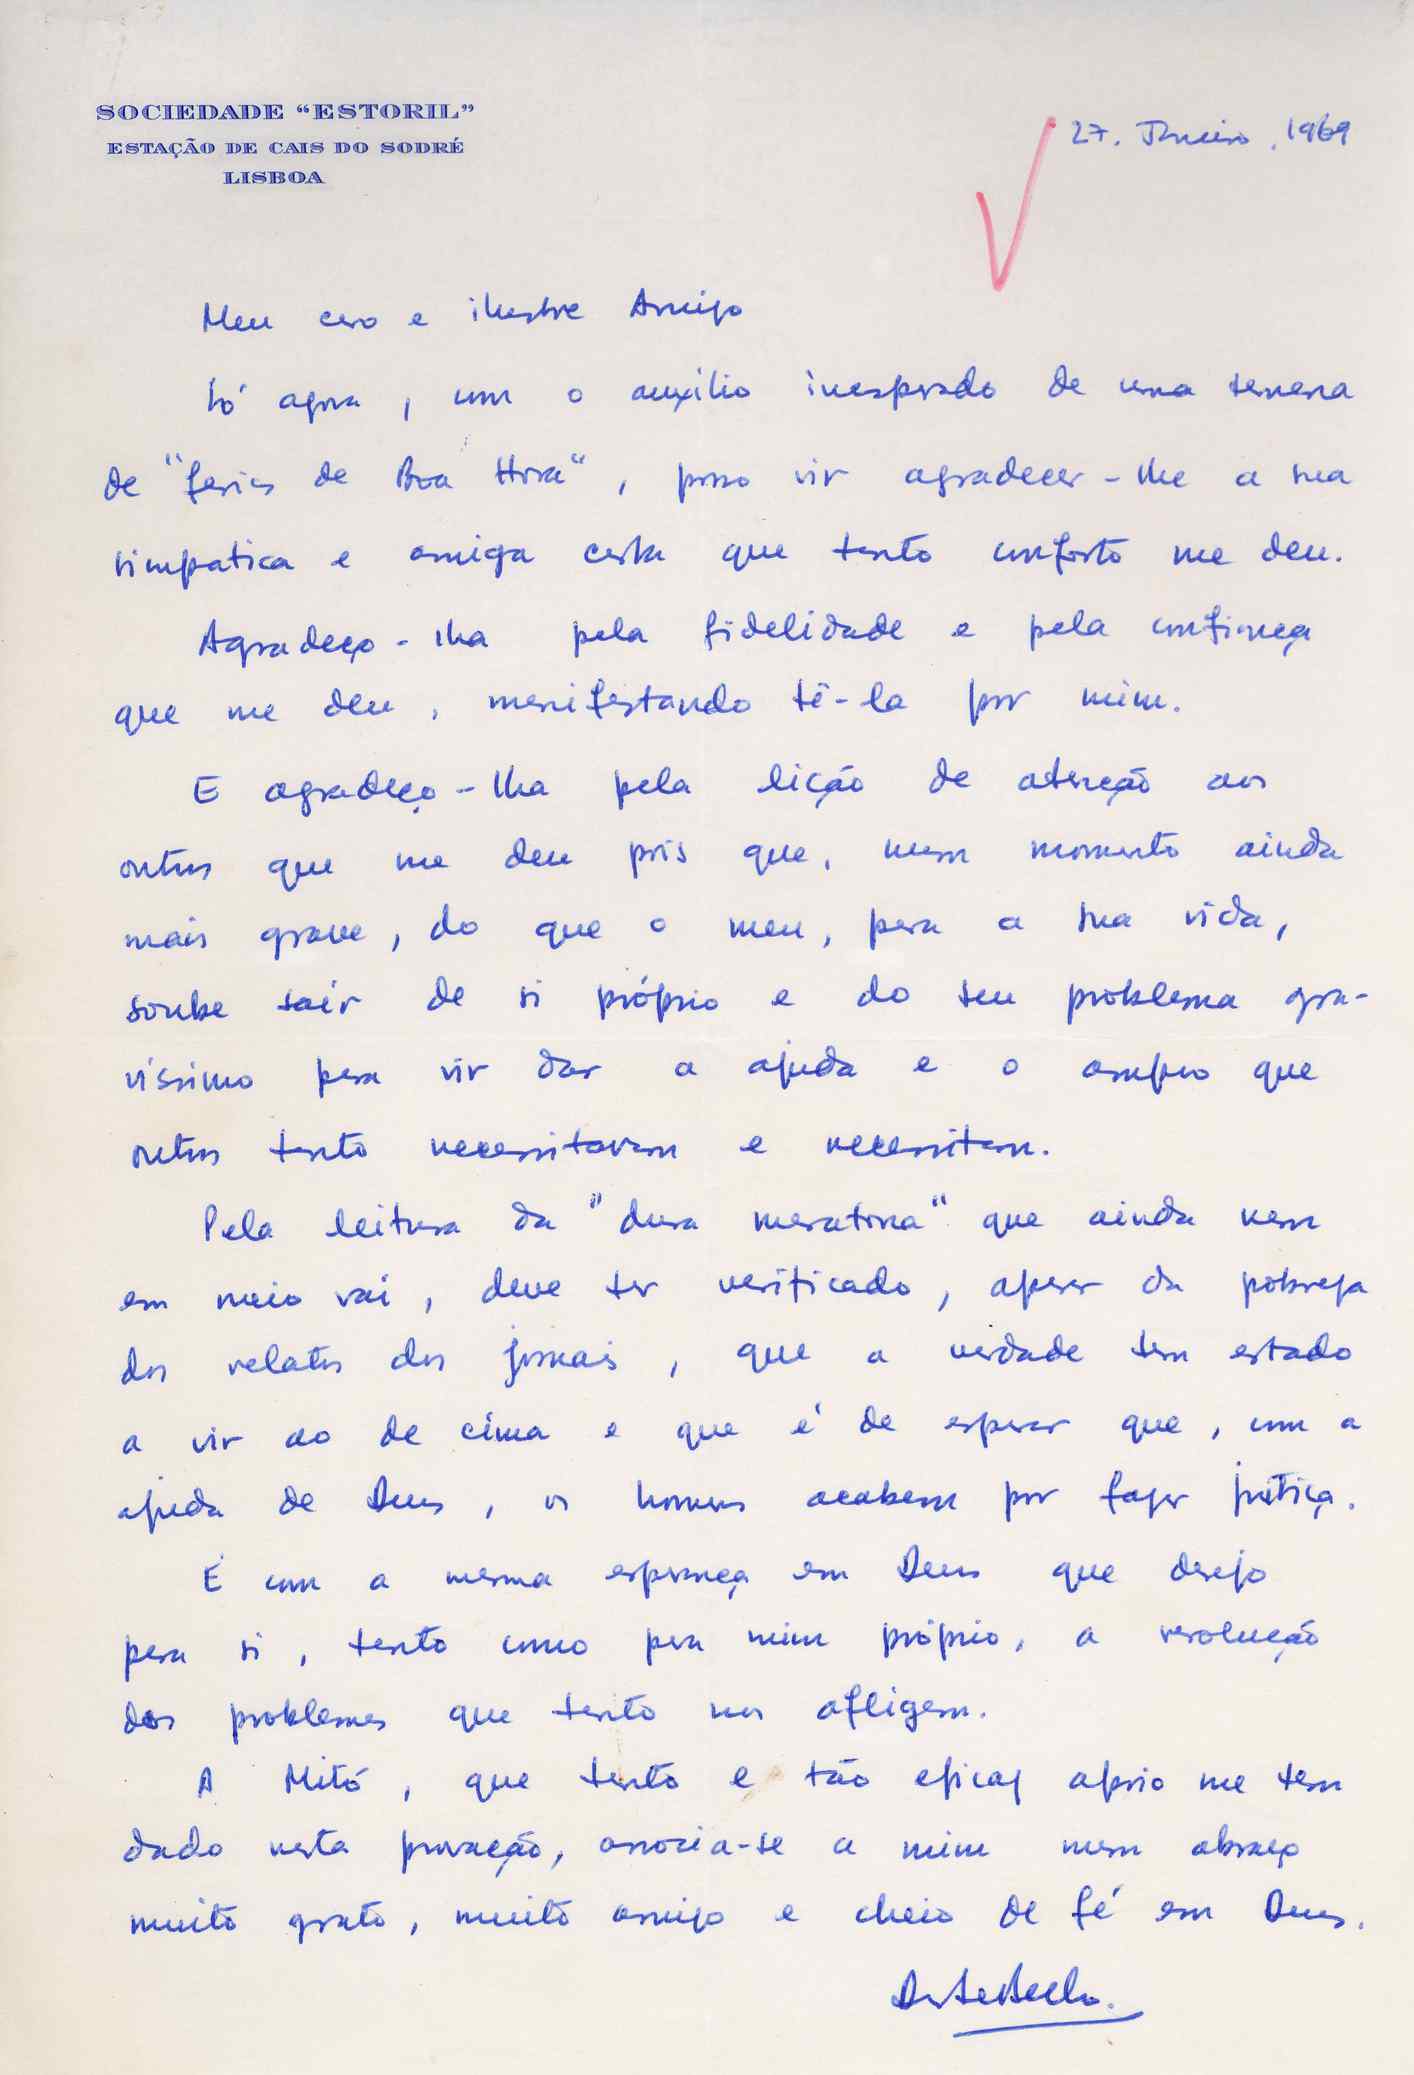 SOCIEDADE “ESTORIL”
ESTAÇÃO DE CAIS DO SODRÉ
LISBOA
27. Janeiro. 1969
Meu caro e ilustre Amigo
Só agora, com o auxílio inesperado de uma semana
de "ferias de Boa Hora", posso vir agradecer-lhe a sua
simpatica e amiga carta que tanto conforto me deu.
Agradeço-lha pela fidelidade e pela confiança
que me deu, manifestando tê-la por mim.
E agradeço-lha pela lição de atenção aos
outros que me deu pois que, num momento ainda
mais grave, do que o meu, para a sua vida,
soube saír de si próprio e do seu problema gra-
víssimo para vir dar a ajuda e o amparo que
outros tanto necessitavam e necessitam.
Pela leitura da "dura maratona" que ainda nem
em meio vai, deve ter verificado, apesar da pobreza
dos relatos dos jornais, que a verdade tem estado
a vir ao de cima e que é de esperar que, com a
ajuda de Deus, os homens acabem por fazer justiça.
É com a mesma esperança em Deus que desejo
para si, tanto como para mim próprio, a resolução
dos problemas que tanto nos afligem.
A Mitó, que tanto e tão eficaz apoio me tem
dado nesta provação, associa-se a mim num abraço
muito grato, muito amigo e cheio de fé em Deus.